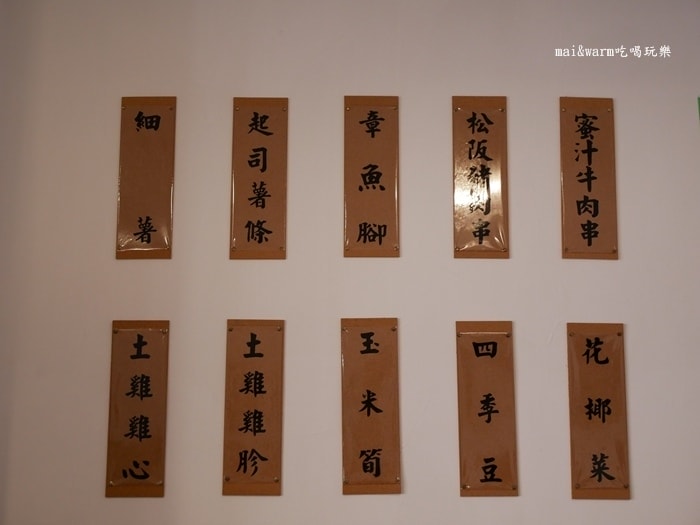 mai&warm吃喝玩樂
蜜汁牛肉串
松阪豬肉串
章魚腳
起司薯條
細薯
花椰菜
四季豆
玉米筍
土雞雞胗
土雞雞心